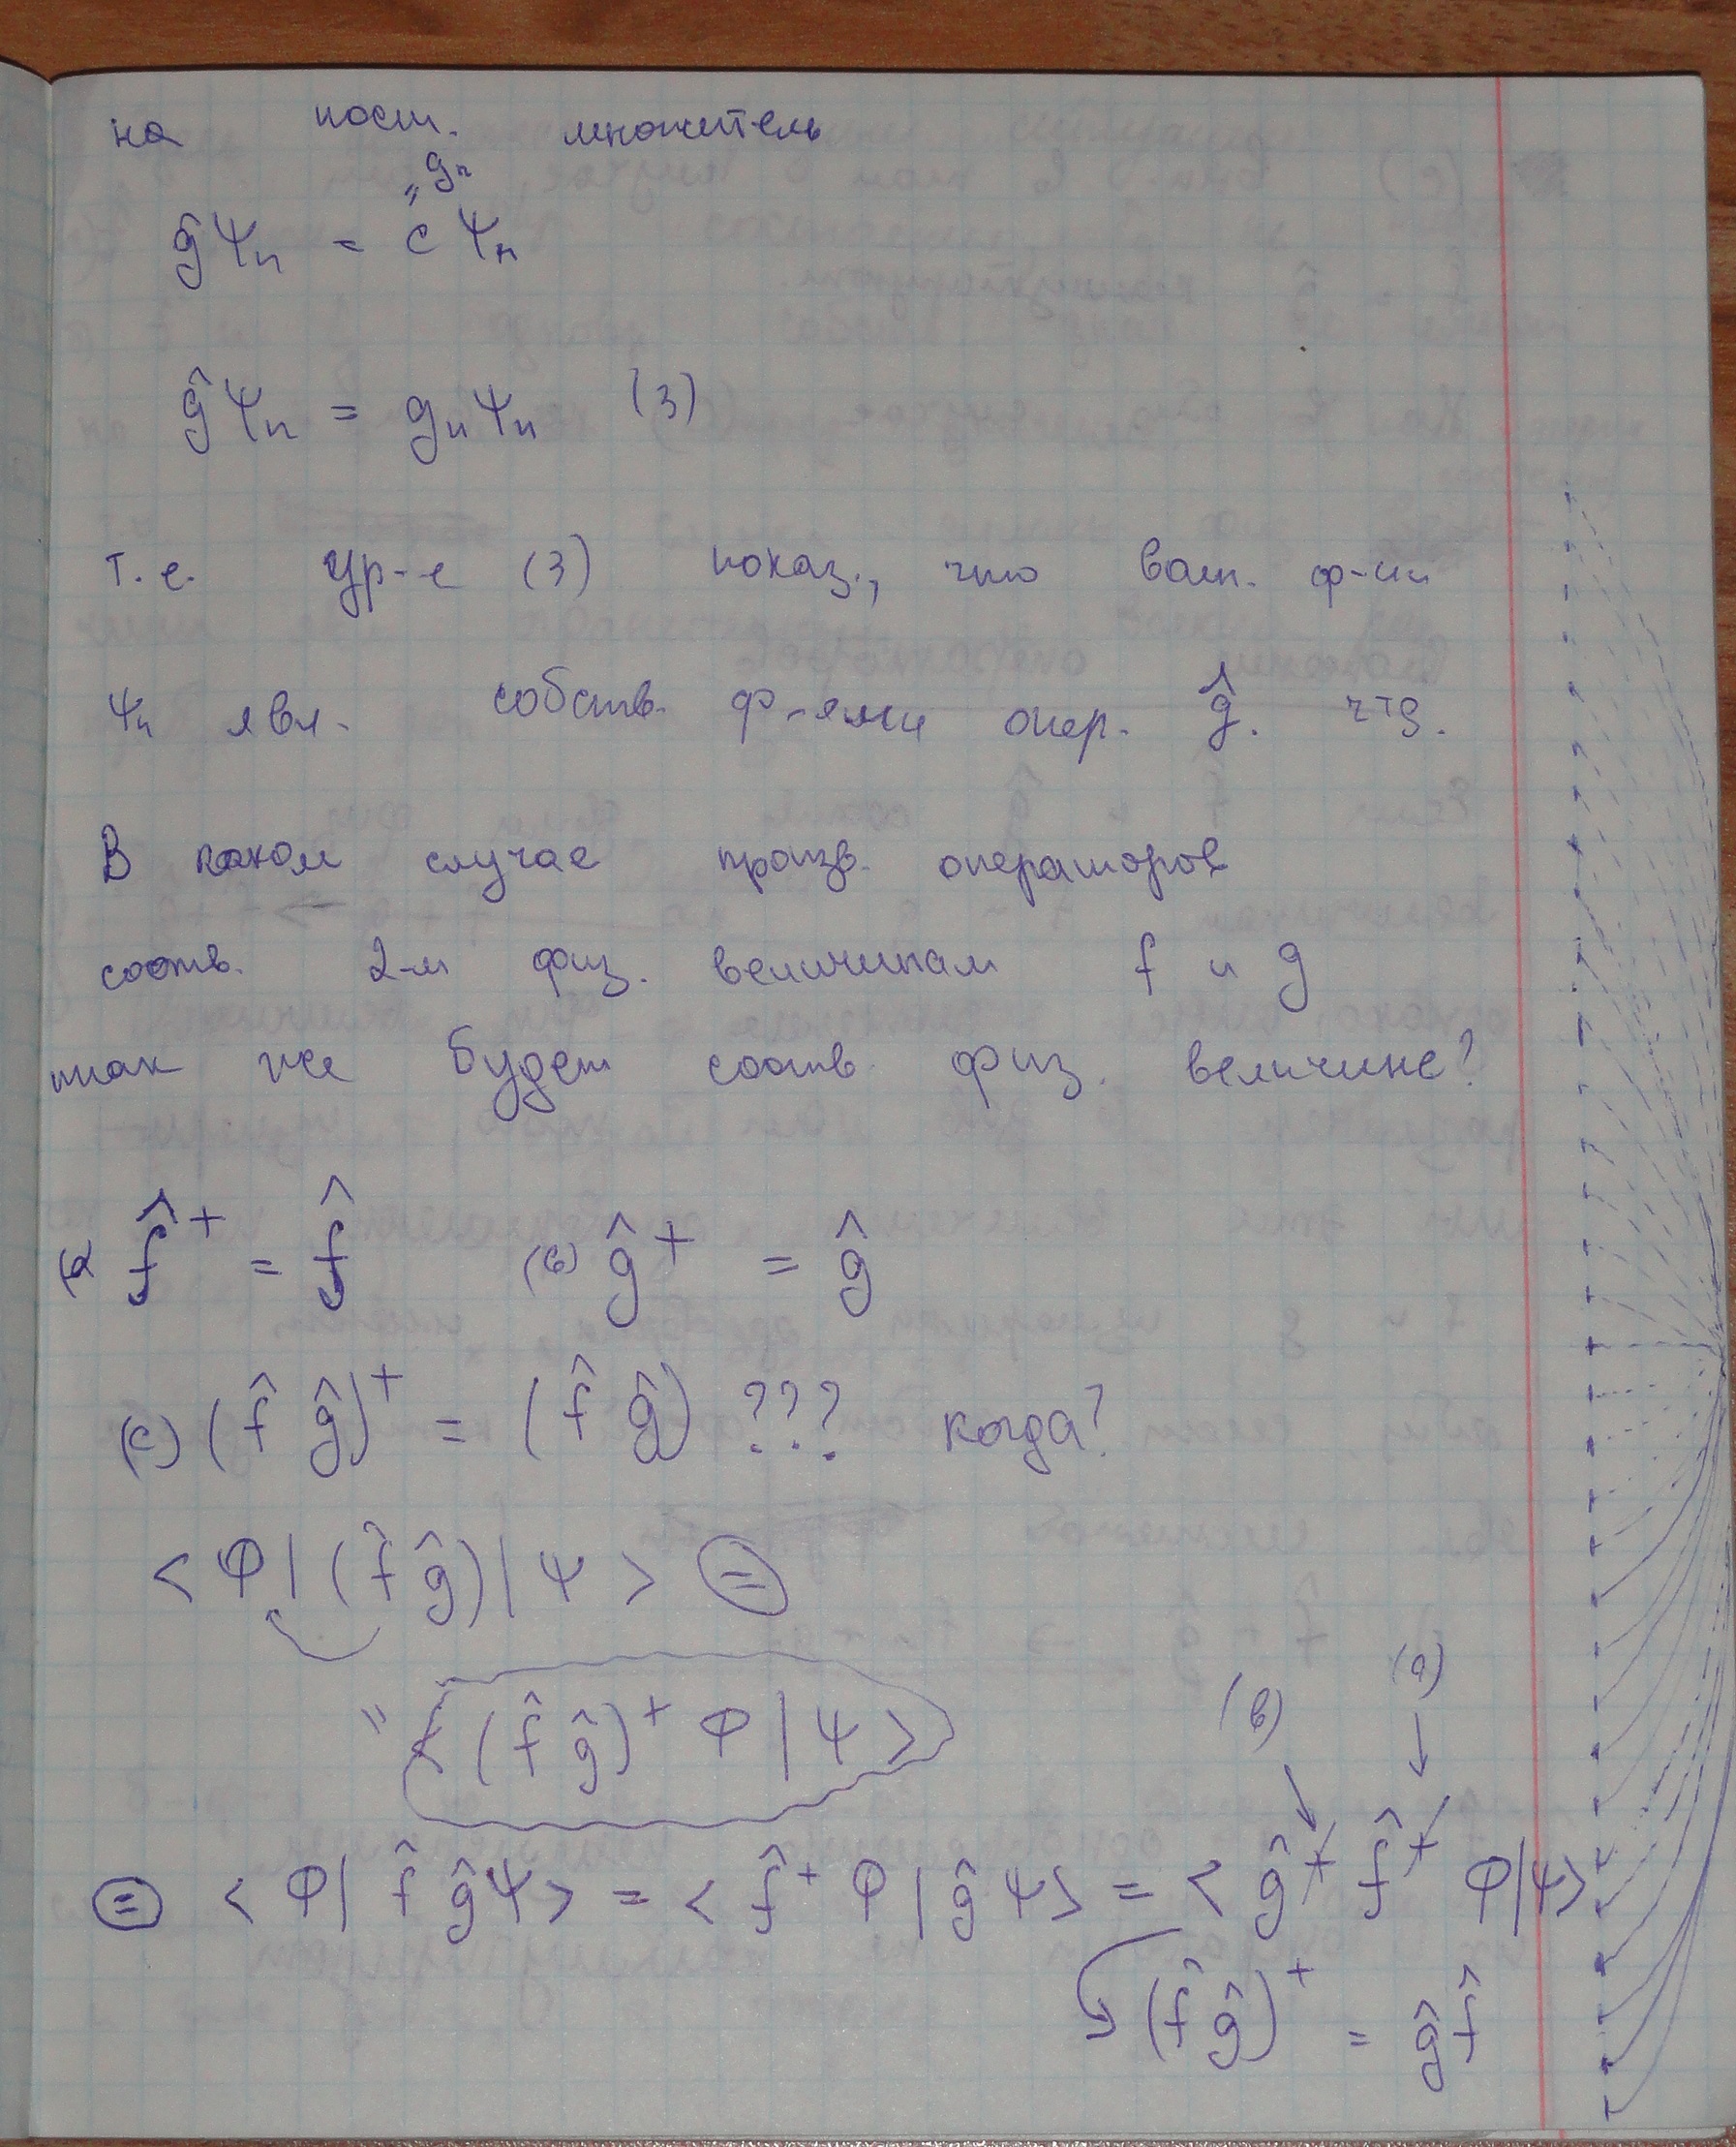 на пост. множитель
" gₙ
ĝ Ψₙ = c Ψₙ
ĝ Ψₙ = gₙ Ψₙ (3)
т.е. ур-е (3) показ., что волн. ф-ии
Ψₙ явл. собств. ф-ями опер. ĝ. чтд.
В каком случае произв. операторов
соотв. 2-м физ. величинам f и g
так же будет соотв. физ. величине?
(a) f̂⁺ = f̂ (в) ĝ⁺ = ĝ
(c) (f̂ ĝ)⁺ = (f̂ ĝ) ??? когда?
< Φ | (f̂ ĝ) | Ψ > ⊜
" < (f̂ ĝ)⁺ Φ | Ψ >
(в) (a)
⊜ < Φ | f̂ ĝ Ψ > = < f̂⁺ Φ | ĝ Ψ > = < ĝ⁺ f̂⁺ Φ | Ψ >
(f̂ ĝ)⁺ = ĝ f̂